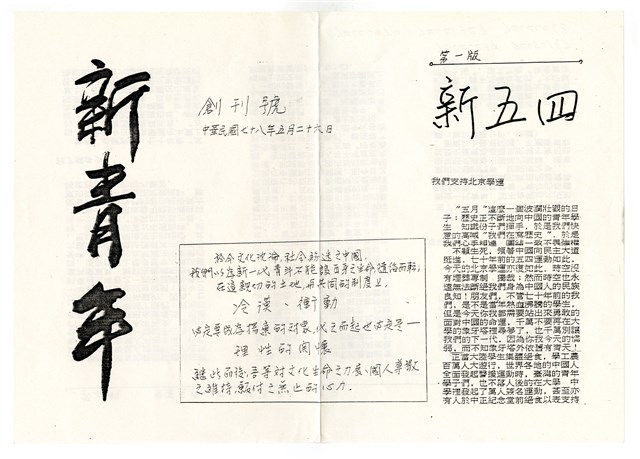 新青年
創刊號
中華民國七十八年五月二十六日
第一版
新五四
我們支持北京學運
"五月"這麼一個波瀾壯觀的日
子:歷史正不斷地向中國的青年學
生 知識份子們揮手,於是我們快
意的高喊"我們在寫歷史",於是
我們心手相連 團結一致不畏強權
不顧生死,領著中國向民主大道
挺進,七十年前的五四運動如此,
今天的北京學運亦復如此,時空沒
有埋歸專制 獨裁;然而時空也永
遠無法斷絕我們身為中國人的民族
良知!朋友們,不管七十年前的我
們,是不是當年熱血沸騰的學生,
但是今天你我都需要站出來勇敢的
面對中國的命運,千萬不要再在大
學的象牙塔裡尋夢了,也千萬別讓
我們的下一代,因為你我今天的懦
弱,而不知象牙塔外依舊有青天!
正當大陸學生集體絕食,學工農
百萬人大遊行,世界各地的中國人
全面發起聲援運動時,臺灣的青年
學子們,也不落人後的在大學 中
學裡發起了萬人簽名運動,甚至亦
有人於中正紀念堂前絕食以表支持
於今文化沈淪,社會 之中國,
我們以為新一代青年不能讓自身之生命隨俗而轉,
在這親切的土地, 共同的制度上,
冷漠、衝動
必定要成為揚棄的對象,代之而起也必定是—
理性的關懷
謹此而後,吾等對文化生命之力展、國人尊嚴
之維持,願付之無止的心力.